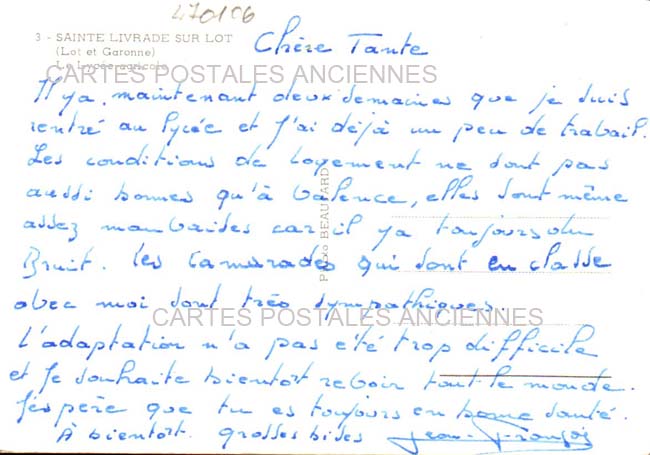 470106
3 - SAINTE LIVRADE SUR LOT
(Lot et Garonne)
Le Lycée agricole
CARTES POSTALES ANCIENNES
Chère Tante
Il y a maintenant deux semaines que je suis
rentré au lycée et j'ai déjà un peu de travail.
Les conditions de logement ne sont pas
aussi bonnes qu'à Valence, elles sont même
assez mauvaises car il y a toujours du
Bruit. les camarades qui sont en classe
avec moi sont très sympathiques.
CARTES POSTALES ANCIENNES
L'adaptation n'a pas été trop difficile
et je souhaite bientôt revoir tout le monde.
J'espère que tu es toujours en bonne santé.
À bientôt. grosses bises Jean-François
Photo BEAUVARD